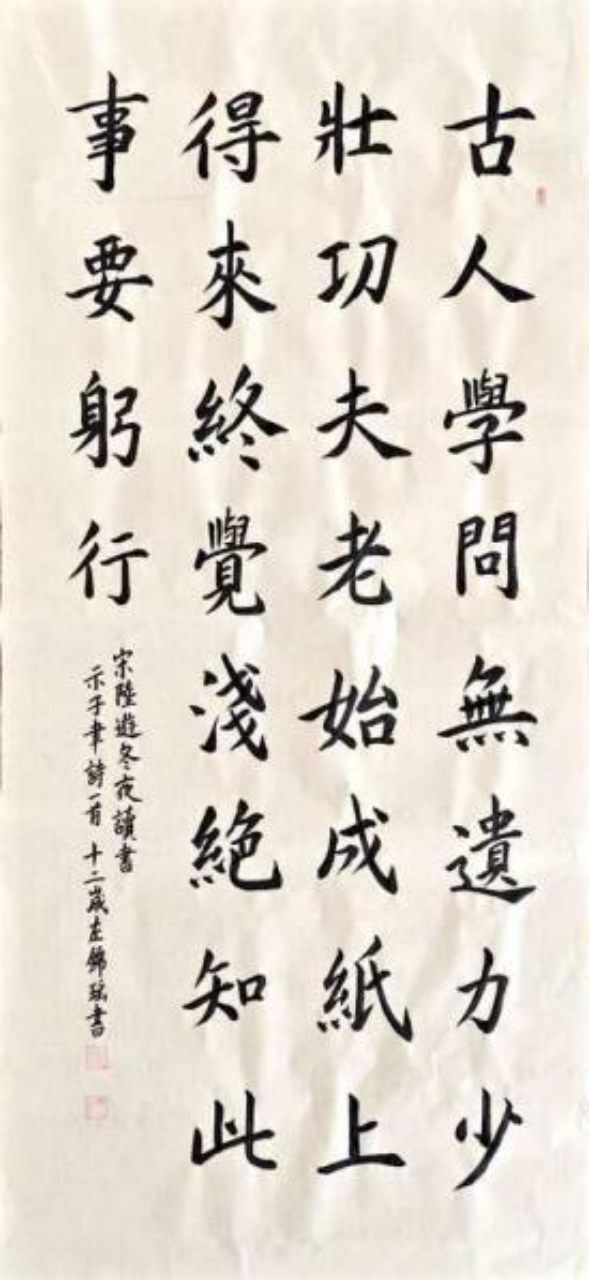 古人學問無遺力少
壯功夫老始成紙上
得來終覺淺絕知此
事要躬行
宋陸遊冬夜讀書
示子聿詩一首 十二歲左錦瑞書